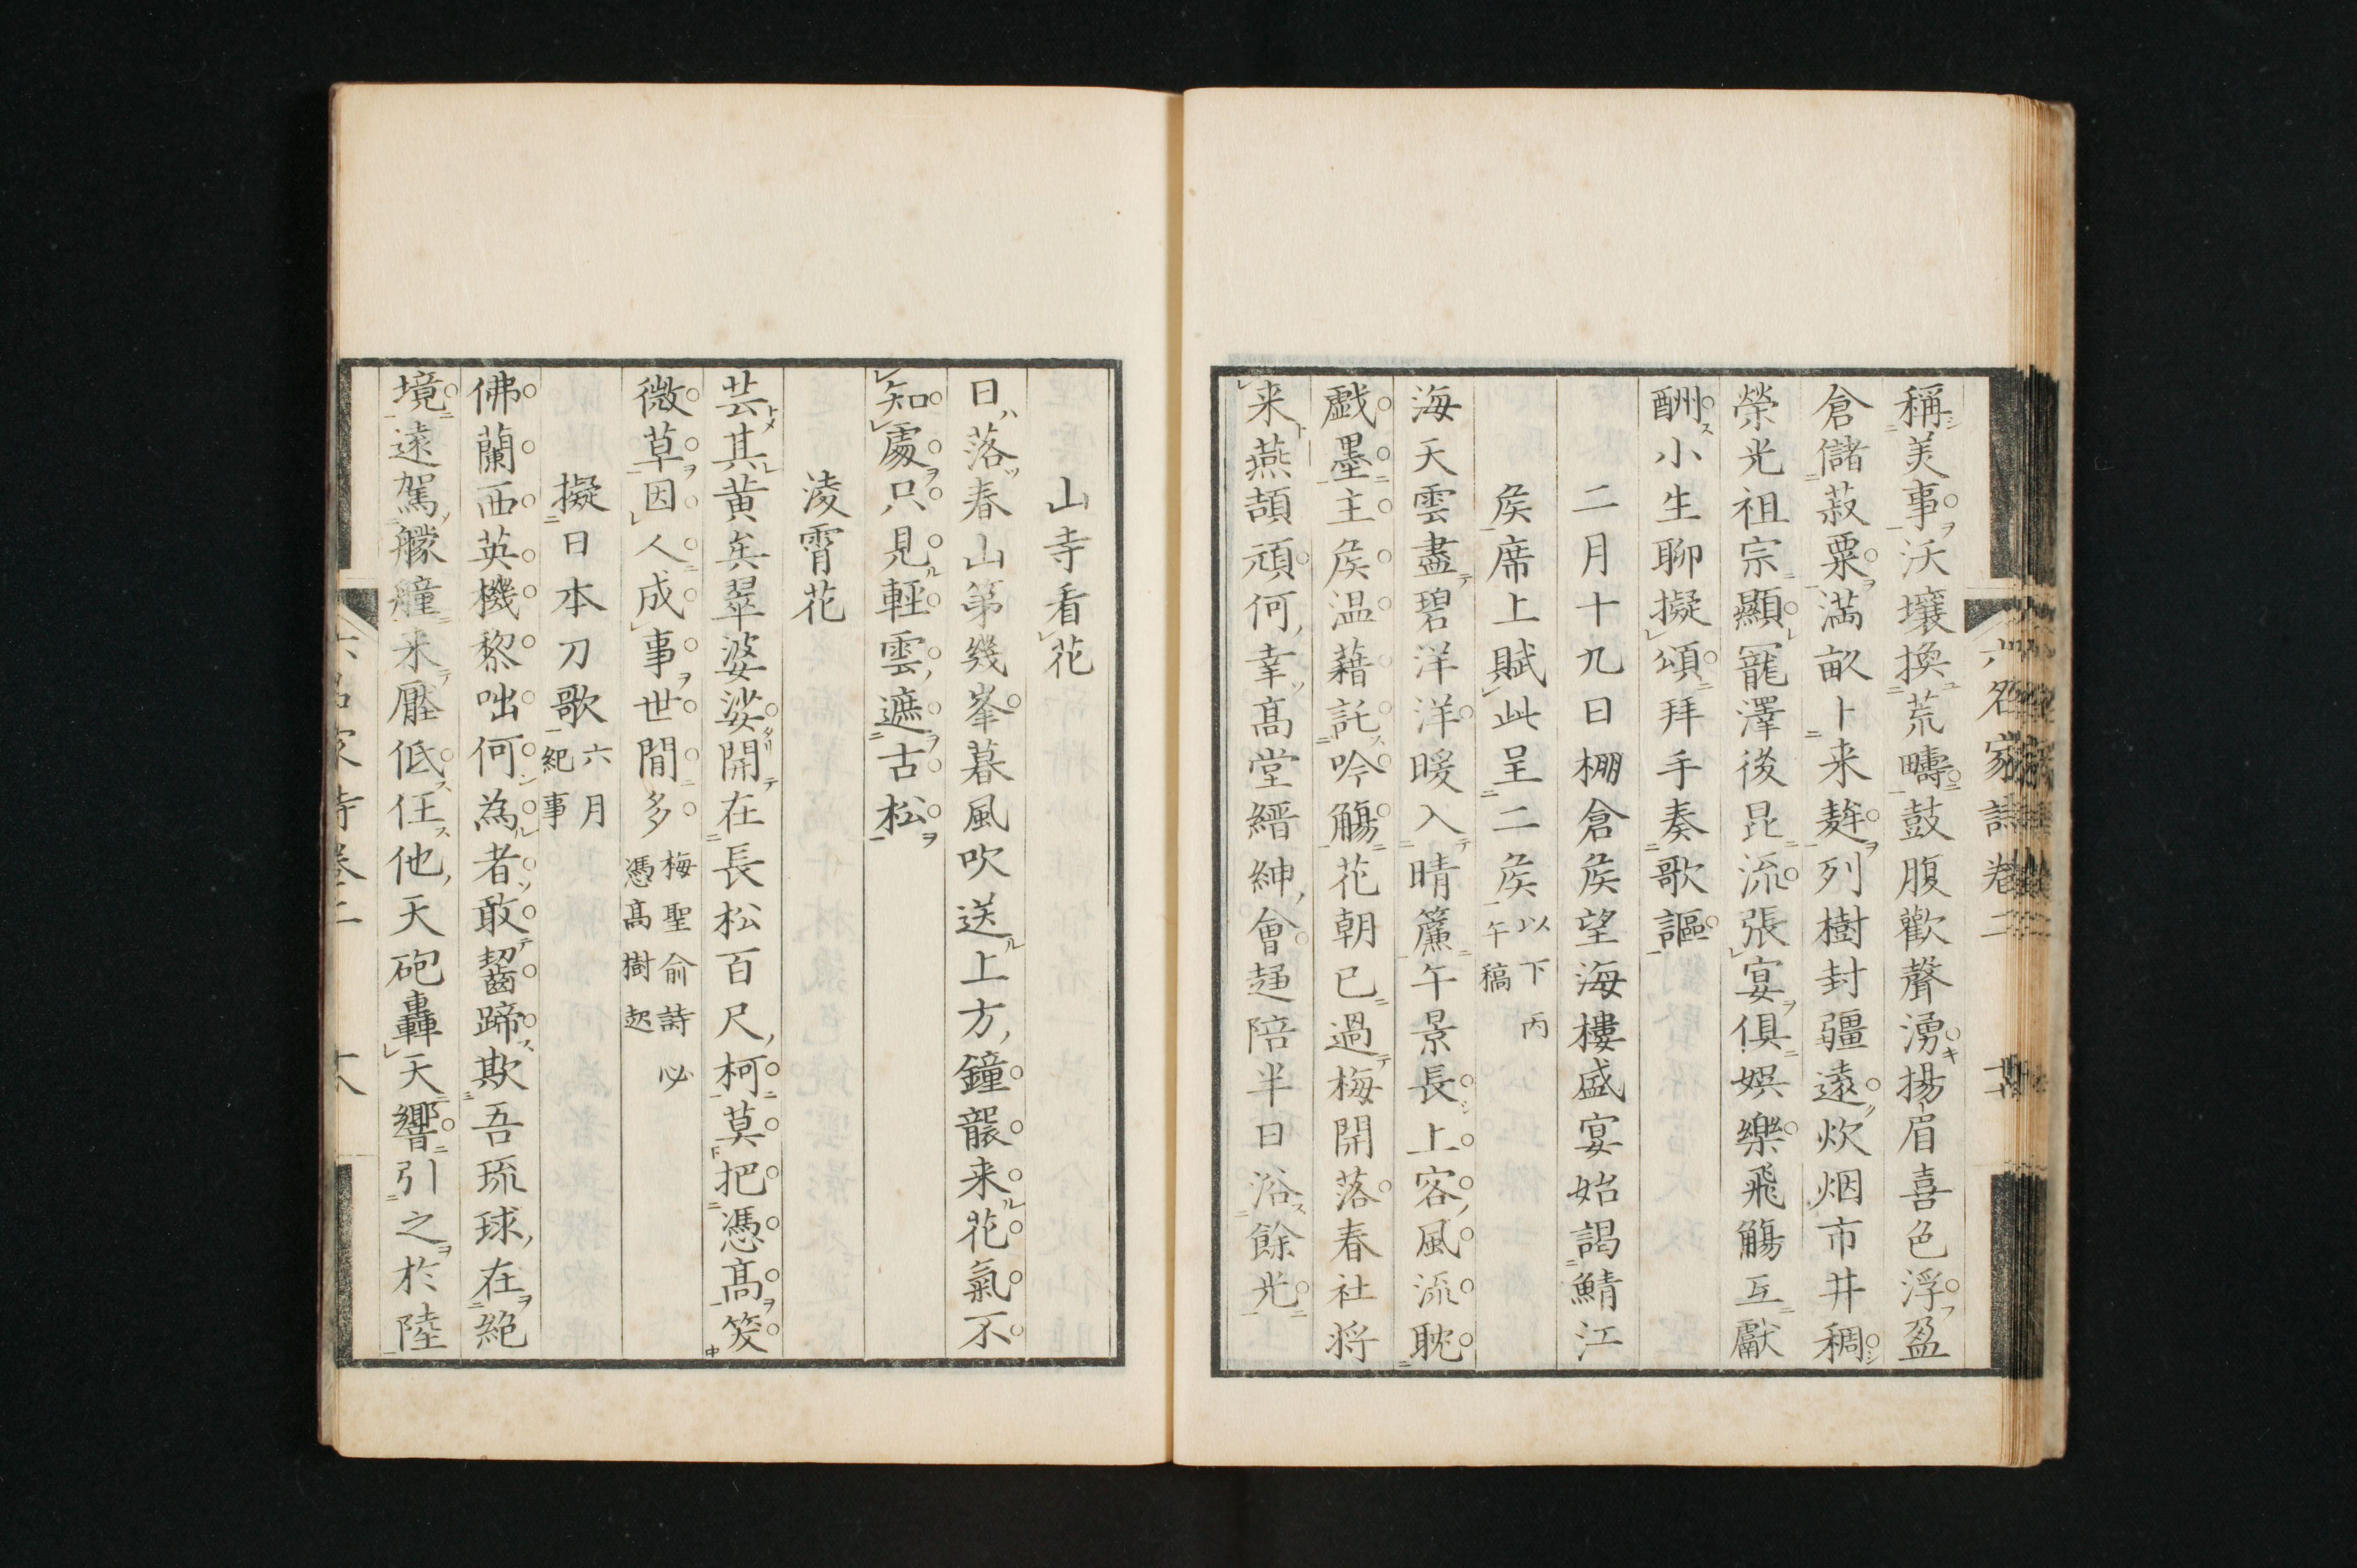 稱美事沃壤換荒疇鼓腹歡聲湧揚眉喜色浮盈
倉儲菽粟満畝卜来麰列樹封疆遠炊烟市井稠
榮光祖宗顯寵澤後昆流張宴俱娯樂飛觴互獻
酬小生聊擬頌拜手奏歌謳
二月十九日棚倉矦望海樓盛宴始謁鯖江
矦席上賦此呈二矦以下丙午稿
海天雲盡碧洋洋暖入晴簾午景長上客風流耽
戯墨主矦温藉託吟觴花朝已過梅開落春社将
来燕頡頏何幸高堂縉紳會趨陪半日浴餘光
六名家詩巻二
山寺看花
日落春山第幾峯暮風吹送上方鐘襲来花氣不
知處只見輕雲遮古松
淩霄花
芸其黄矣翠婆娑開在長松百尺柯莫把憑高笑
微草因人成事世間多梅聖俞詩必憑高樹起
擬日本刀歌六月紀事
佛蘭西英機黎咄何為者敢齧蹄欺吾琉球在絶
境遠駕艨艟来壓低任他天砲轟天響引之於陸
六名家詩巻二 十八